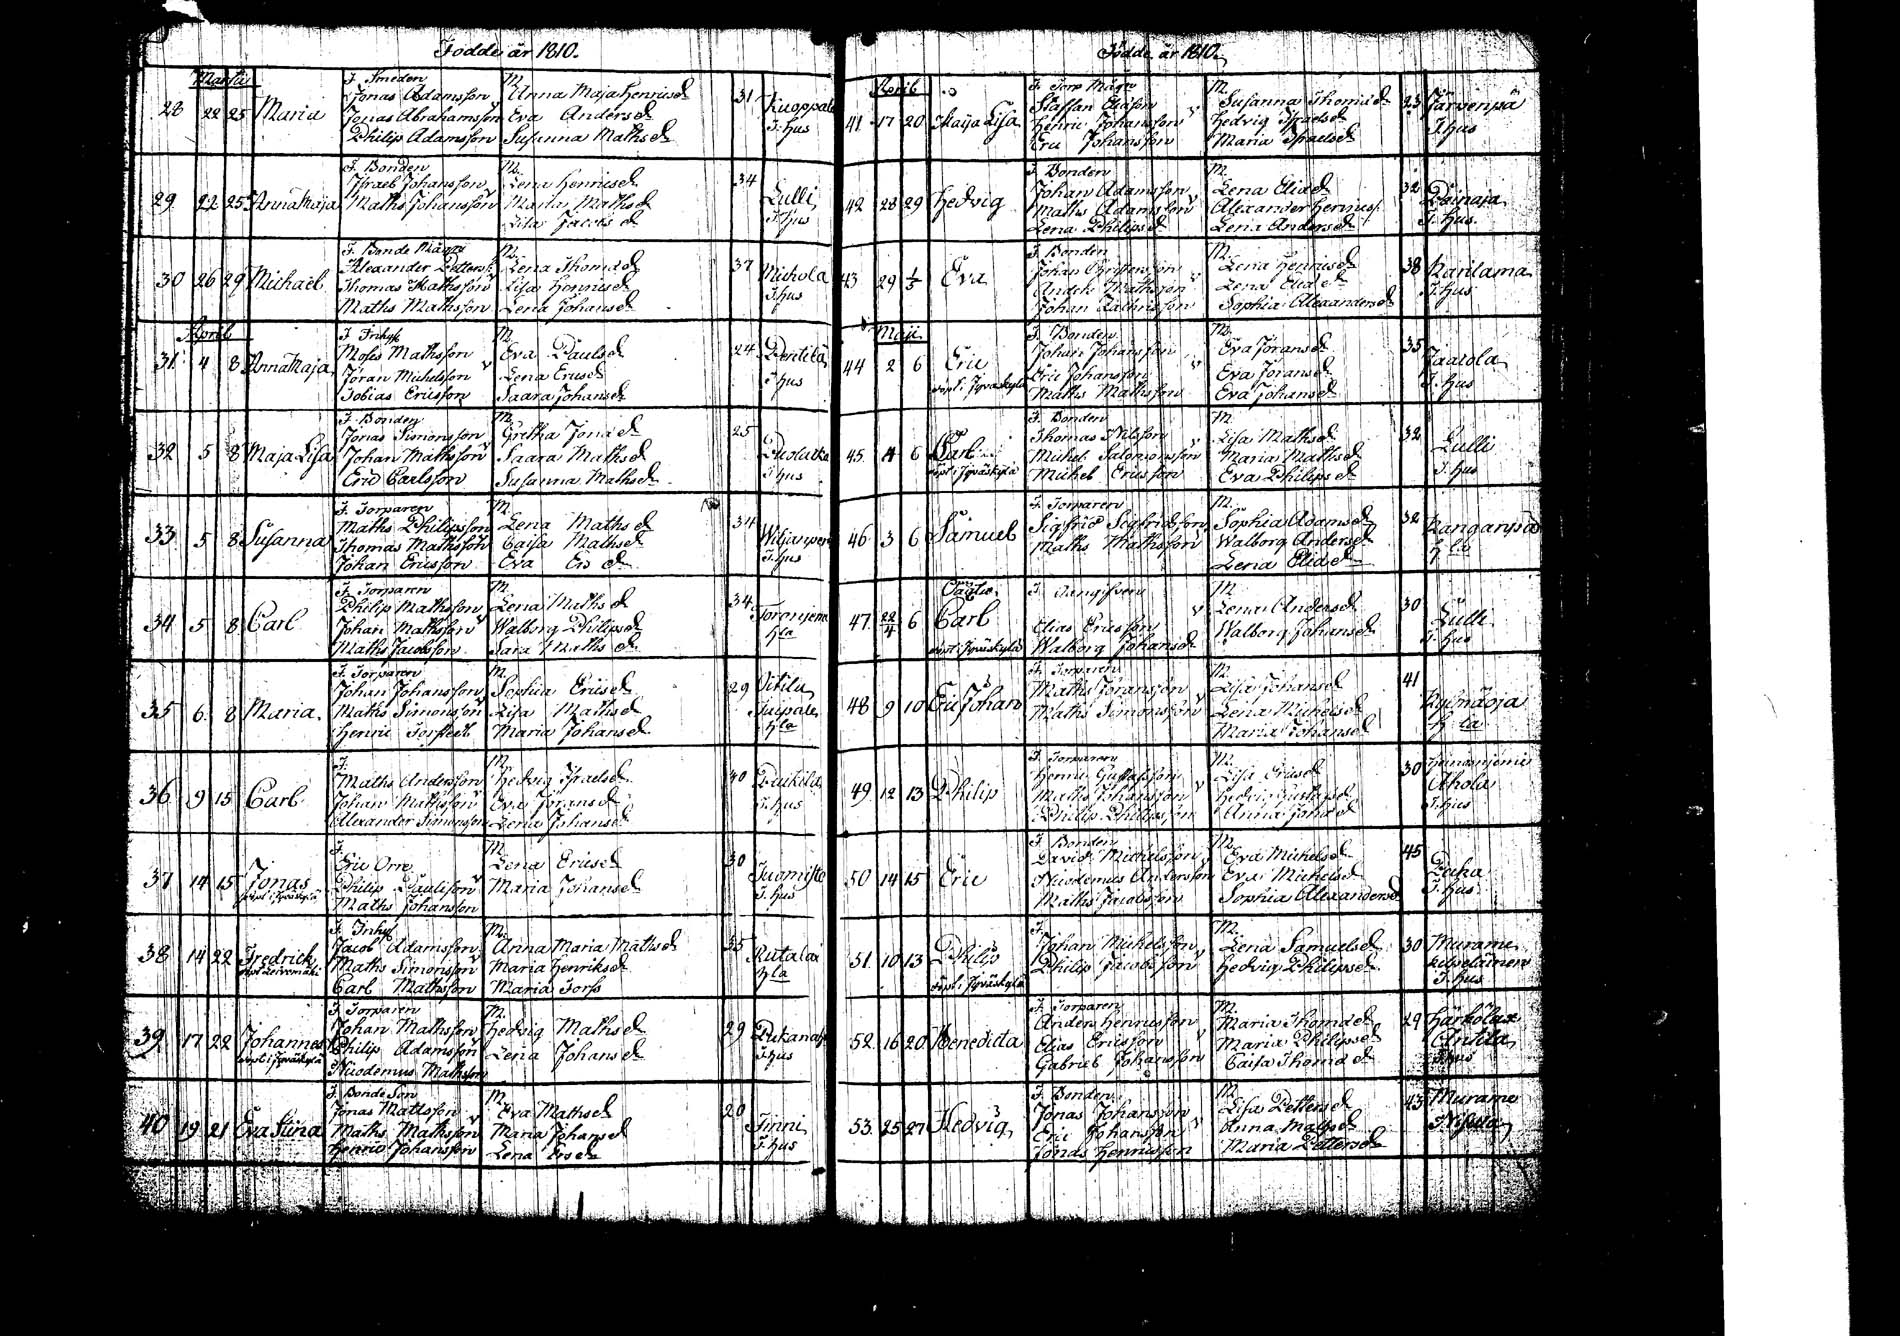 Födde år 1810.
Martii
28 22 25 Maria
F. Smeden
Jonas Adamsson
Jonas Abrahamsson
Philip Adamsson
M.
Anna Maja Henricsd
Eva Andersd
Susanna Mathsd
31
Kuoppala
T. hus
29 22 25 Anna Maja
F. Bonden
Israel Johansson
Maths Johansson
M.
Lena Henricsd
Maria Mathsd
Lisa Jacobsd
34
Lulli
T. hus
30 26 29 Michael
F. Bonde Mågen
Alexander Petterss.
Thomas Mathsson
Maths Mathsson
M.
Lena Thomæd
Lisa Henricsd
Lena Johansd
37
Michola
T. hus
April
31 4 8 Anna Maja
F. Inhys
Moses Mathsson
Jöran Michelsson
Tobias Ericsson
M.
Eva Paulsd
Lena Ericsd
Saara Johansd
24
Penttilä
T. hus
32 5 8 Maja Lisa
F. Bonden
Jonas Simonsson
Johan Mathsson
Eric Carlsson
M.
Gretha Jonæd
Saara Mathsd
Susanna Mathsd
25
T. hus
33 5 8 Susanna
F. Torparen
Maths Philipsson
Thomas Mathsson
Johan Ericsson
M.
Lena Mathsd
Caisa Mathsd
Eva Ersd
34
T. hus
34 5 8 Carl
F. Torparen
Philip Mathsson
Johan Mathsson
Maths Jacobsson
M.
Lena Mathsd
Walborg Philipsd
Sara Mathsd
34
Toronjemi
hla
35 6 8 Maria
F. Torparen
Johan Johansson
Maths Simonsson
Henric Torstedt
M.
Sophia Ericsd
Lisa Mathsd
Maria Johansd
29
hla
36 9 15 Carl
F.
Maths Andersson
Johan Mathsson
Alexander Simonsson
M.
Hedvig Israelsd
Eva Jöransd
Lena Johansd
30
Paukila
T. hus
37 14 15 Jonas
döpt i Jyväskylä
F.
Eric Orre
Philip Paulsson
Maths Johansson
M.
Lena Ericsd
Maria Johansd
30
Tuomisto
T. hus
38 14 22 Fredrick
F. Inhys
Jacob Adamsson
Maths Simonsson
Carl Mathsson
M.
Anna Maria Mathsd
Maria Henriksd
Maria Torss
35
Rutalax
hla
39 17 22 Johannes
döpt i Jyväskylä
F. Torparen
Johan Mathsson
Philip Adamsson
Nicodemus Mathsson
M.
Hedvig Mathsd
Lena Johansd
29
T. hus
40 19 21 Eva Stina
F. Bonde Son
Jonas Mattsson
Maths Mathsson
Henric Johansson
M.
Eva Mathsd
Maria Johansd
Lena Ersd
20
Tinni
T. hus
Födde år 1810.
April
41 17 20 Maija Lisa
F. Torp Mågen
Staffan Eliasson
Henric Johansson
Eric Johansson
M.
Susanna Thomæd
Hedvig Israelsd
Maria Israelsd
23
Järvenpä
T. hus
42 28 29 Hedvig
F. Bonden
Johan Adamsson
Maths Adamsson
Lena Philipsd
M.
Lena Eliæd
Alexander Henrics.
Lena Andersd
32
T. hus
43 29 1/5 Eva
F. Bonden
Johan Christersson
Anders Mathsson
Johan Zachrisson
M.
Lena Henricsd
Lena Eliæd
Sophia Alexandersd
38
Karilama
T. hus
Maji
44 2 6 Eric
döpt i Jyväskylä
F. Bonden
Johan Johansson
Eric Johansson
Maths Mathsson
M.
Eva Jöransd
Eva Jöransd
Eva Johansd
35
Jaatola
T. hus
45 4 6 Carl
döpt i Jyväskylä
F. Bonden
Thomas Nilsson
Michel Salomonsson
Michel Ericsson
M.
Lisa Mathsd
Maria Mathsd
Eva Philipsd
32
Lulli
T. hus
46 3 6 Samuel
F. Torparen
Sigfrid Sigfridsson
Maths Mathsson
M.
Sophia Adamsd
Walborg Andersd
Lena Eliæd
32
Kanganpä
hla
47 22/4 6 Oägta
Carl
döpt i Jyväskylä
F. Aungifven
Elias Ericsson
Walborg Johansd
M.
Lena Andersd
Walborg Johansd
30
Lulli
T. hus
48 9 10 Eric Johan
F. Torparen
Maths Jöransson
Maths Simonsson
M.
Lisa Johansd
Lena Michelsd
Maria Johansd
41
hla
49 12 13 Philip
F. Torparen
Henric Gustafsson
Maths Johansson
Philip Philipsson
M.
Lisa Ericsd
Hedvig Gustafsd
Anna Jonæd
30
Ahola
T. hus
50 14 15 Eric
F. Bonden
David Michelsson
Nicodemus Andersson
Maths Jacobsson
M.
Eva Michelsd
Eva Michelsd
Sophia Alexandersd
45
T. hus
51 10 13 Philip
döpt i Jyväskylä
F.
Johan Michelsson
Philip Jacobsson
M.
Lena Samuelsd
Hedvig Philipsd
30
Murame
T. hus
52 16 20 Benedicta
F. Torparen
Anders Henricsson
Elias Ericsson
Gabriel Johansson
M.
Maria Thomæd
Maria Philipsd
Caisa Thomæd
29
Härkölax
Antila
T. hus
53 25 27 Hedvig
F. Bonden
Jonas Johansson
Eric Johansson
Jonas Henricsson
M.
Lisa Pettersd
Anna Mathsd
Maria Pettersd
43
Murame